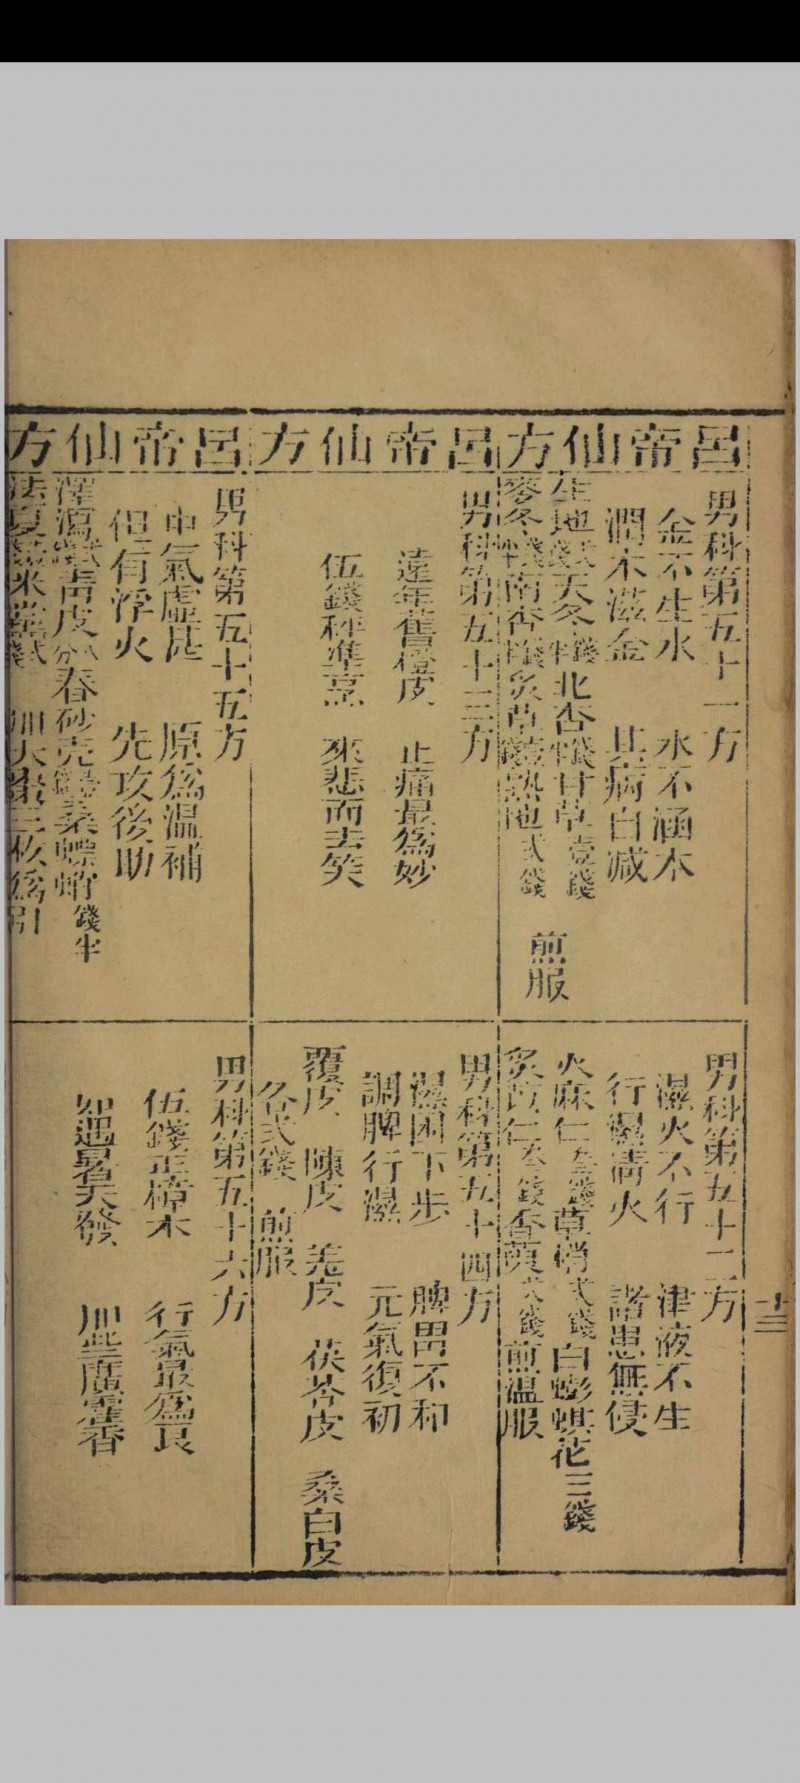 呂帝仙方
男科第五十一方
金不生水　水不涵木
潤木滋金　其病自減
生地 天冬 北杏 甘草壹錢
麥冬 南杏 炙草 熟地弍錢
煎服
男科第五十二方
濕火不行　津液不生
行濕清火　諸患無侵
火麻仁 草梢弍錢 白蟛蜞花三錢
炙苡仁 香薷弍錢 煎溫服
十三
呂帝仙方
男科第五十三方
遠年舊橙皮　止痛最為妙
伍錢秤準烹　來悲而去笑
男科第五十四方
濕困下步　脾胃不和
調脾行濕　元氣復初
覆皮　陳皮　羗皮　茯苓皮　桑白皮
各弍錢　煎服
呂帝仙方
男科第五十五方
中氣虛甚　原為溫補
但有浮火　先攻後助
澤瀉 青皮八分 春砂壳 桑螵蛸錢半
法夏 加大棗三枚為引
男科第五十六方
伍錢正樟木　行氣最為良
如遇暑天發　加些廣藿香